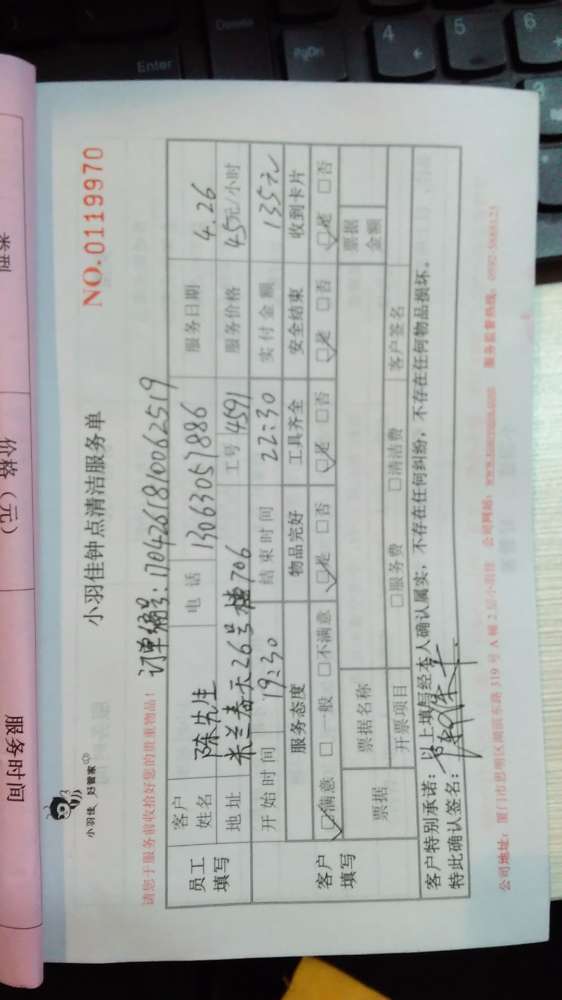 小羽佳 好管家
小羽佳钟点清洁服务单
NO.0119970
请您于服务前收拾好您的贵重物品!
订单编号:1704261810062519
员工填写
客户姓名 陈先生 电话 13063057886 服务日期 4.26
地址 米兰春天26号楼706 工号 4591 服务价格 45元/小时
开始时间 19:30 结束时间 22:30 实付金额 135元
客户填写
服务态度 物品完好 工具齐全 安全结束 收到卡片
☑满意 □一般 □不满意 ☑是 □否 ☑是 □否 ☑是 □否 ☑是 □否
票据 票据名称 票据金额
开票项目 □服务费 □清洁费 客户签名
客户特别承诺:以上填写经本人确认属实,不存在任何纠纷,不存在任何物品损坏。
特此确认签名:
公司地址:厦门市思明区湖滨东路319号A幢2层小羽佳 公司网站: 服务监督热线:0592-5888123
类型
价格(元)
服务时间
Enter
Delete
PgDn
4
5
6